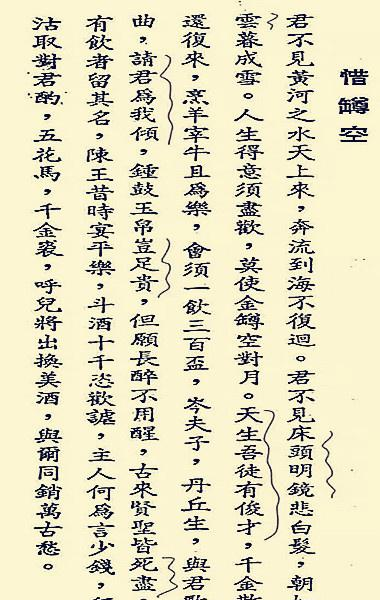 惜罇空
君不見黃河之水天上來，奔流到海不復迴。君不見床頭明鏡悲白髮，朝
雲暮成雪。人生得意須盡歡，莫使金罇空對月。天生吾徒有俊才，千金
還復來，烹羊宰牛且爲樂，會須一飲三百盃，岑夫子，丹丘生，與君歌
曲，請君爲我傾，鍾鼓玉帛豈足貴，但願長醉不用醒，古來賢聖皆死盡，
有飲者留其名，陳王昔時宴平樂，斗酒十千恣歡謔，主人何爲言少錢，
沽取對君酌，五花馬，千金裘，呼兒將出換美酒，與爾同銷萬古愁。